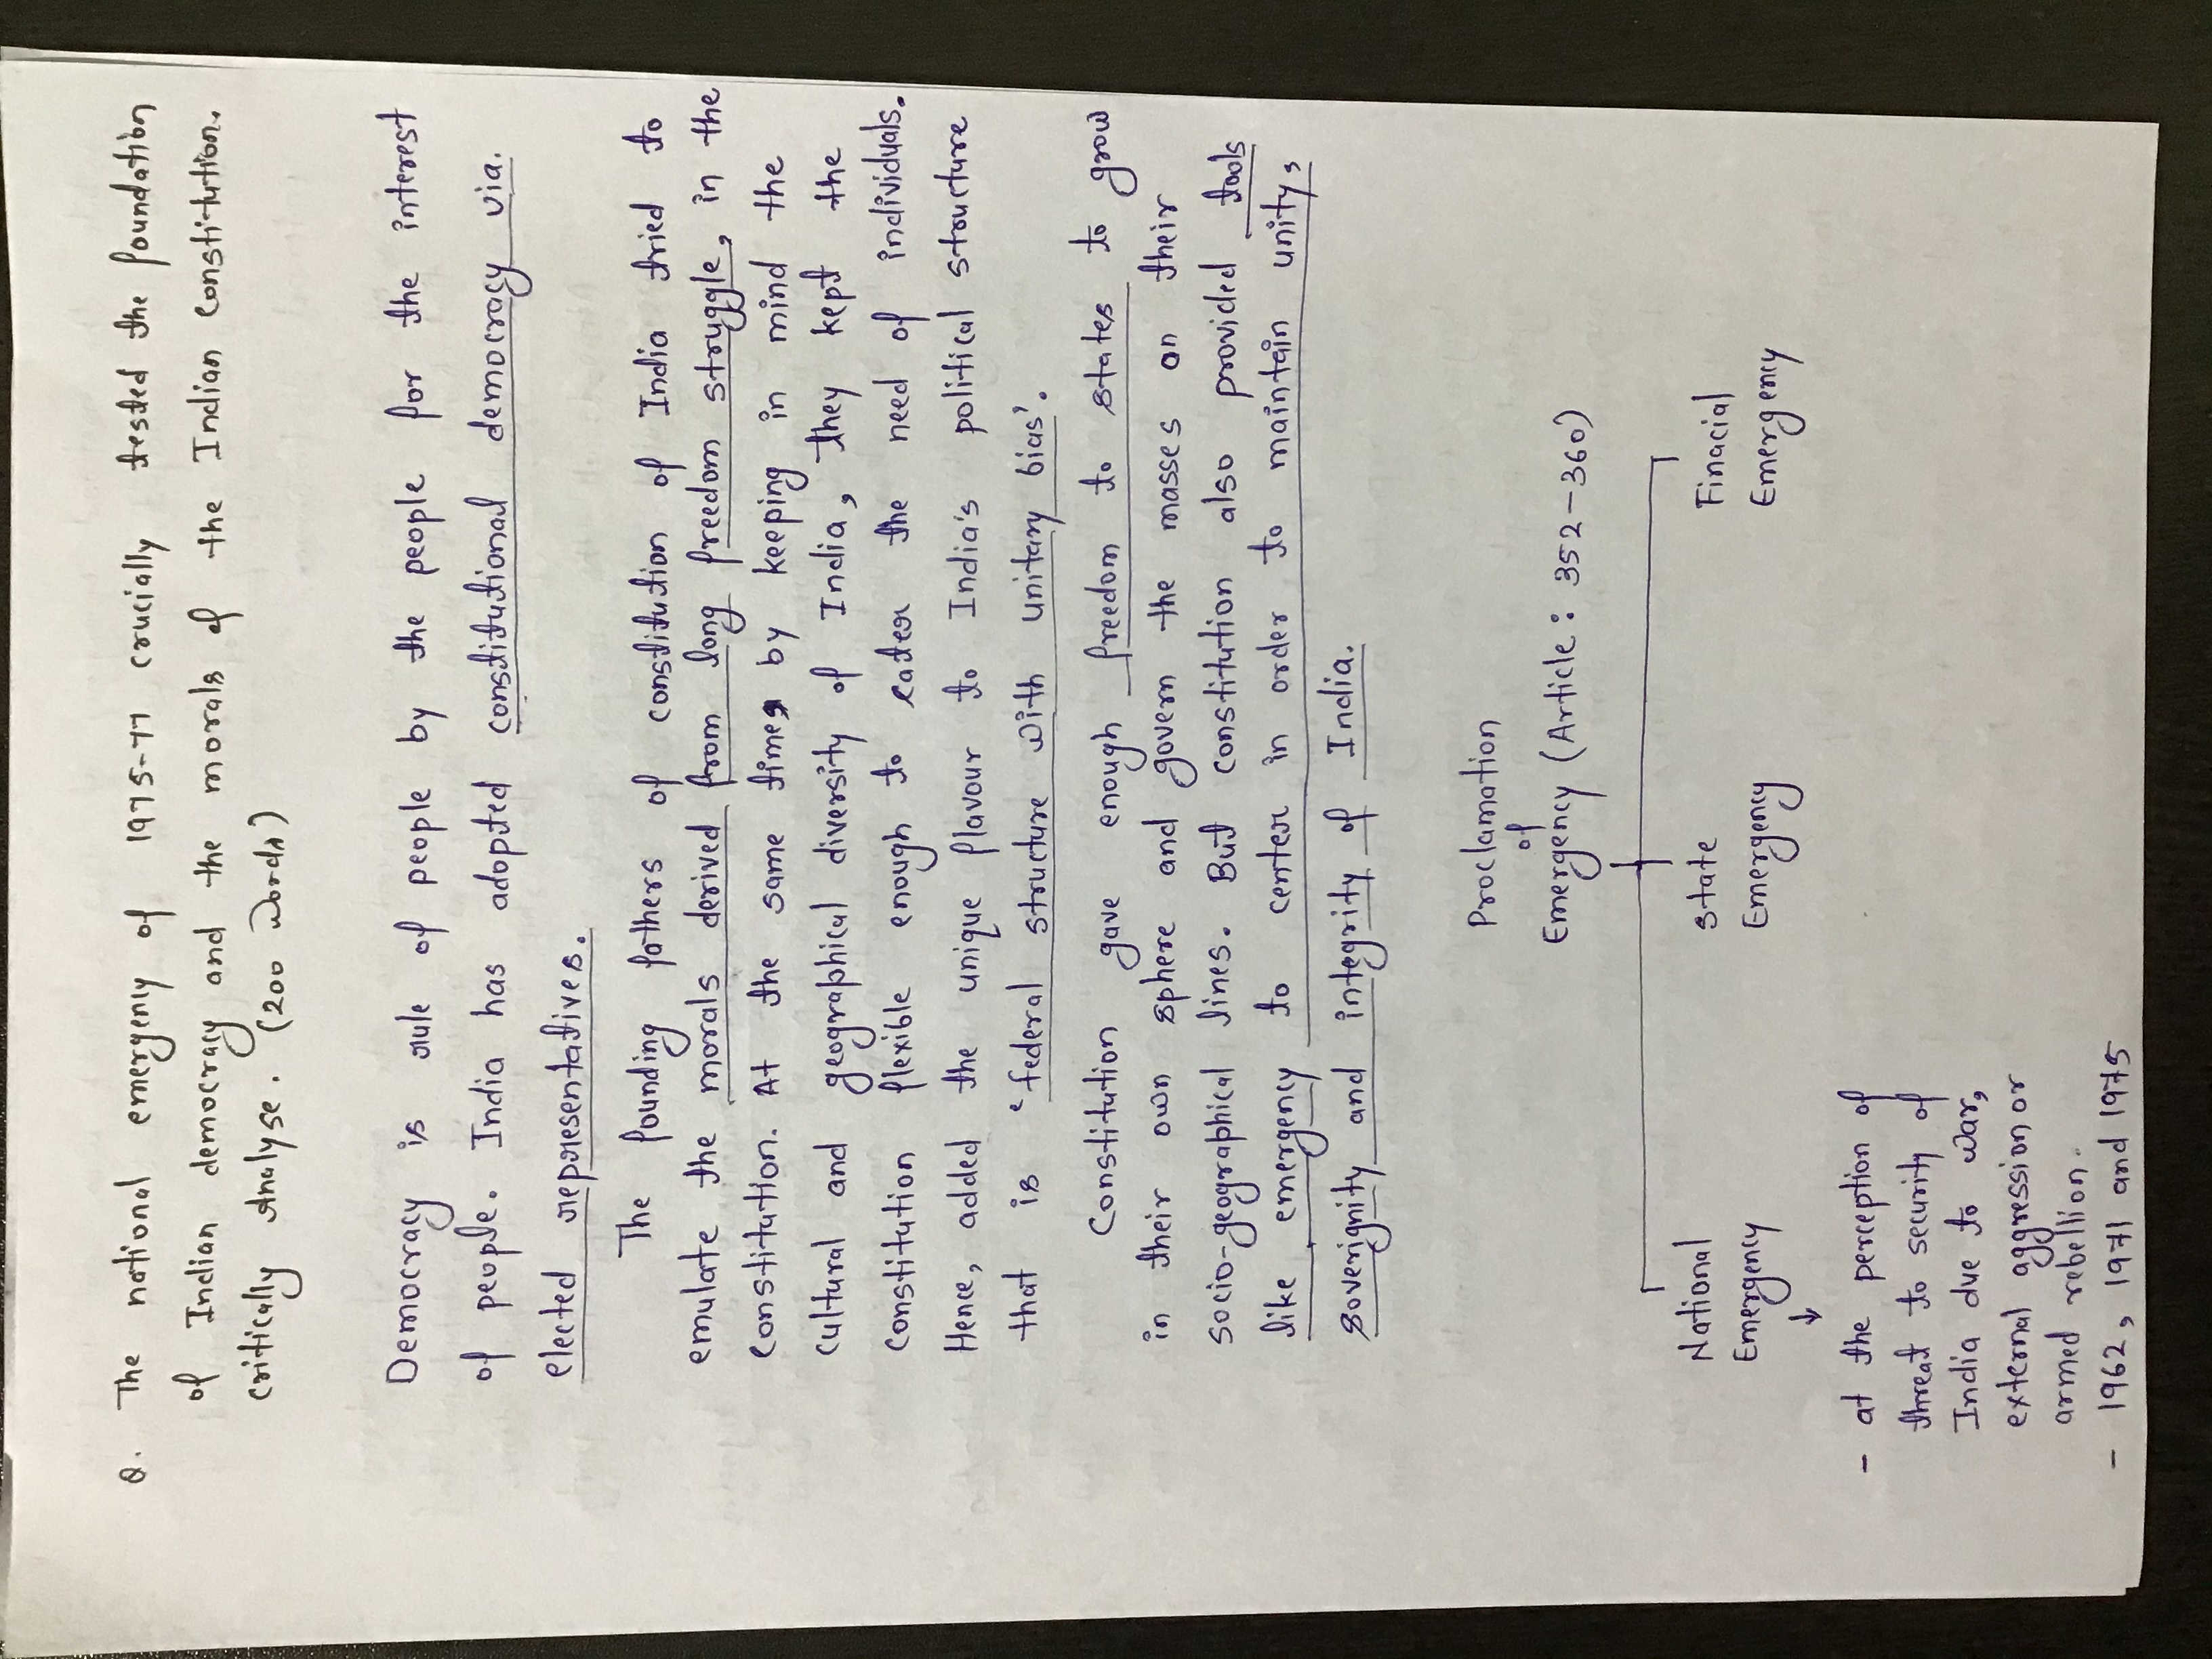 Q. The national emergency of 1975-77 crucially tested the foundation
of Indian democracy and the morals of the Indian Constitution.
Critically Analyse. (200 words)
Democracy is rule of people by the people for the interest
of people. India has adopted constitutional democracy via.
elected representatives.
The founding fathers of constitution of India tried to
emulate the morals derived from long freedom struggle, in the
Constitution. At the same time, by keeping in mind the
cultural and geographical diversity of India, they kept the
constitution flexible enough to cater the need of individuals.
Hence, added the unique flavour to India's political structure
that is 'federal structure with unitary bias'.
Constitution gave enough freedom to states to grow
in their own sphere and govern the masses on their
socio-geographical lines. But constitution also provided tools
like emergency to center in order to maintain unity,
soverignity and integrity of India.
Proclamation
of
Emergency (Article: 352-360)
National
Emergency
State
Emergency
Finacial
Emergency
↓
- at the perception of
threat to security of
India due to war,
external aggression or
armed rebellion.
- 1962, 1971 and 1975